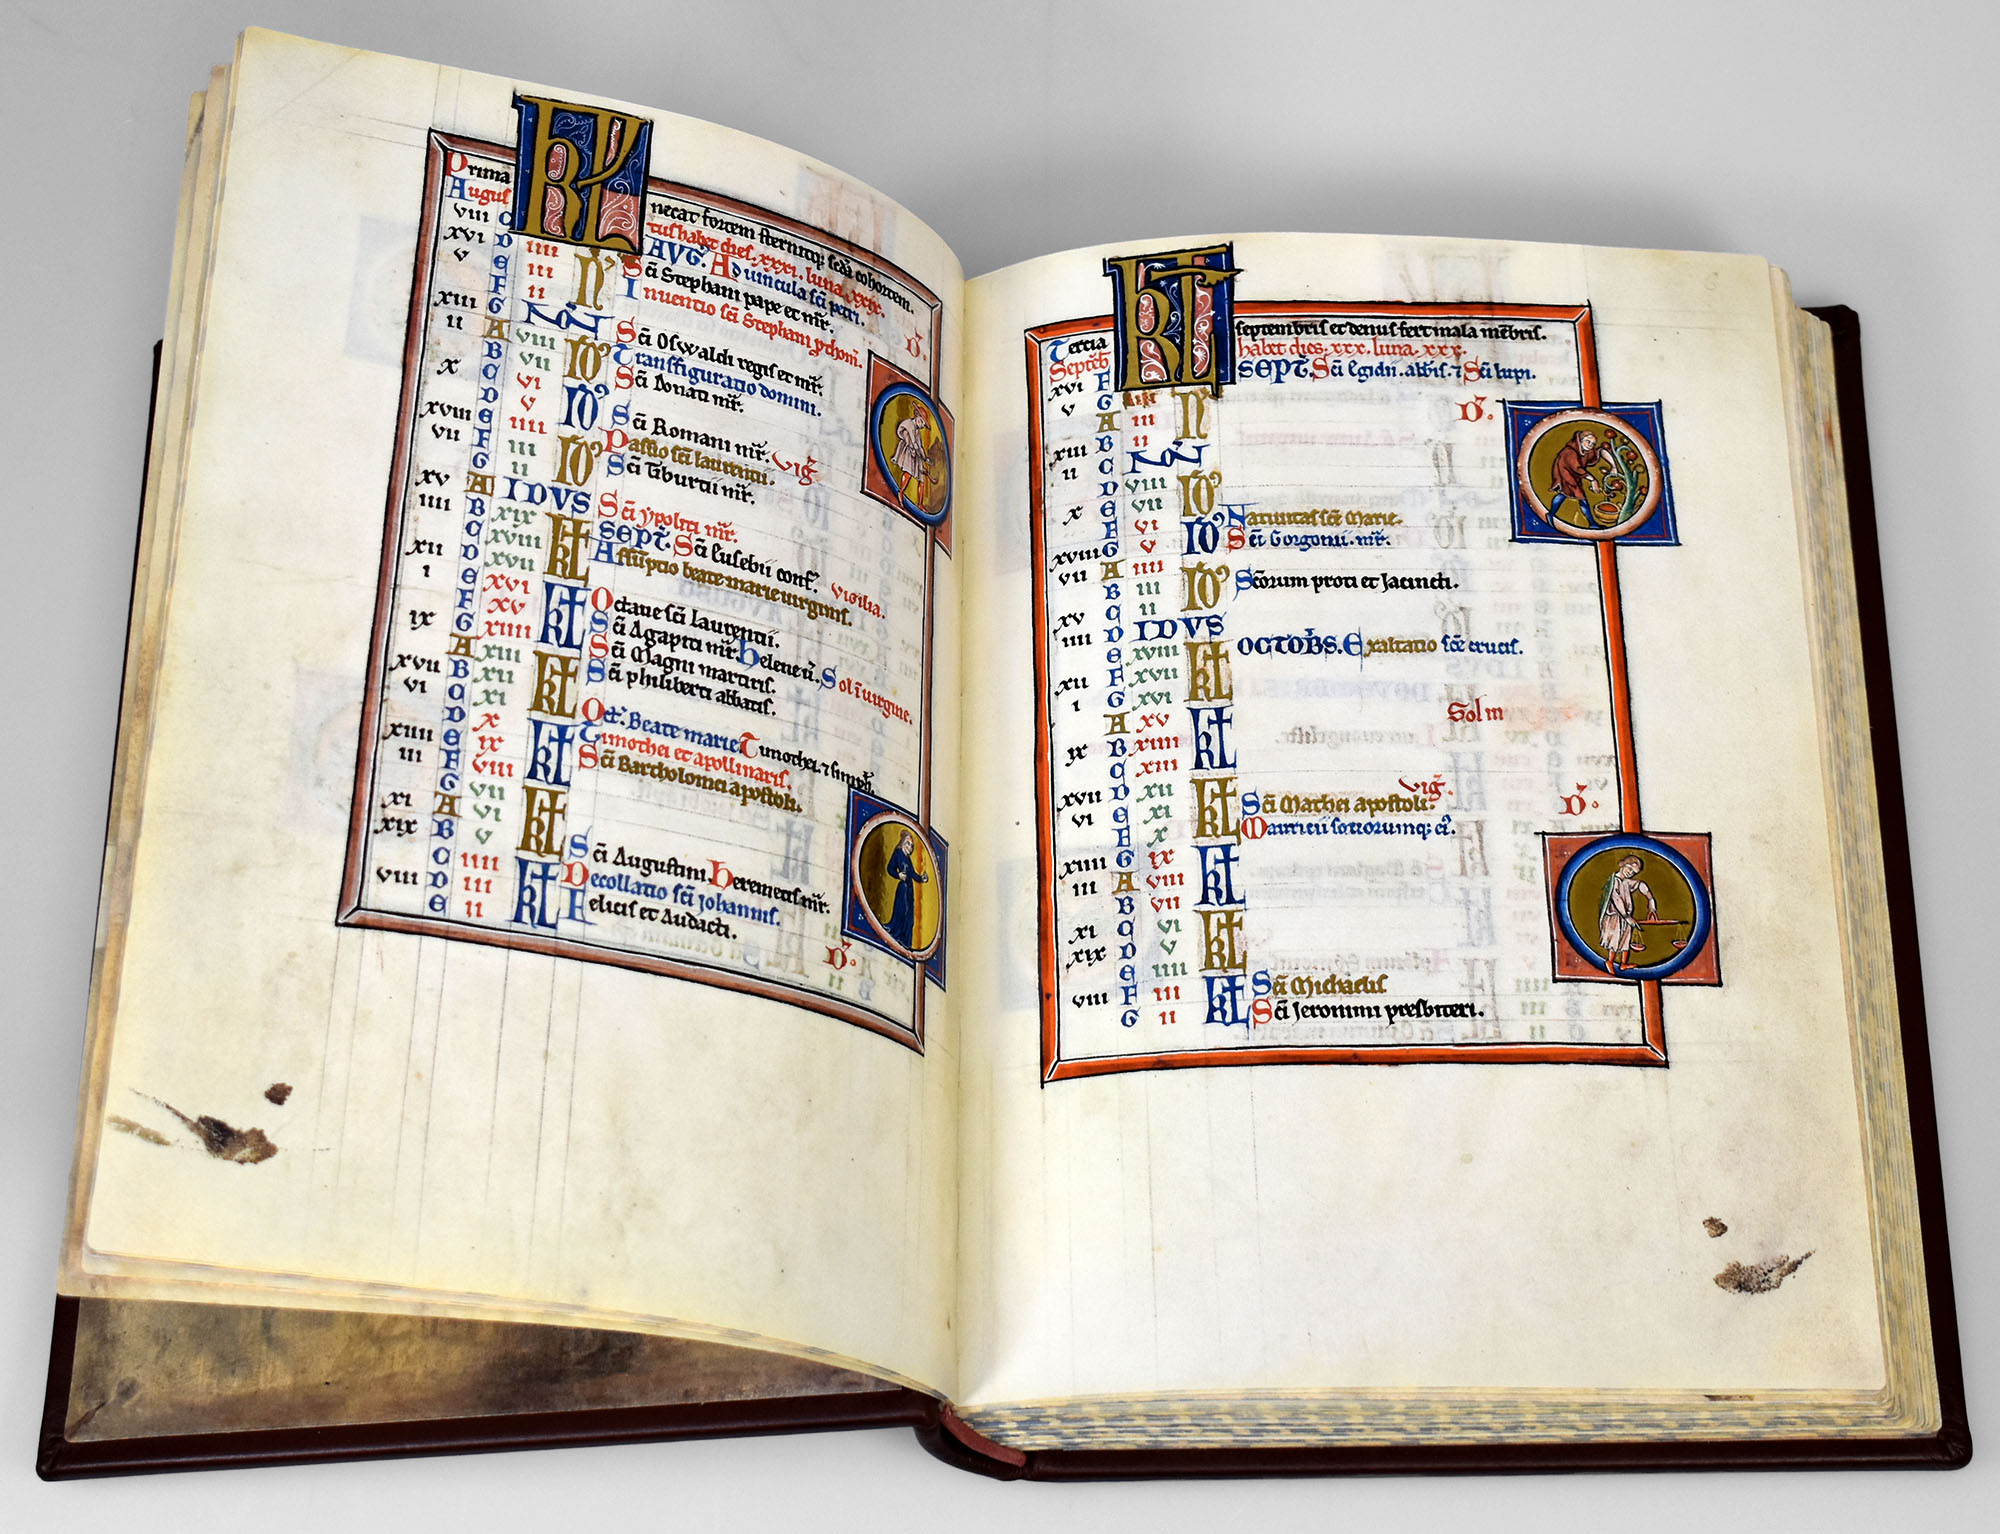 Prima KL necat fortem sternitq; sedã cohortem.
Augus tus habet dies. xxxi. luna. xxix.
viii C AVG. Ad uincula scĩ petri.
xvi D iiii N Scĩ Stephani pape et mr̃.
v E iii Inuentio scĩ Stephani ꝓthom̃.
F ii
xiii G NON Scĩ Oswaldi regis et mr̃.
ii A viii ID' Transfiguratio domini.
B vii Scĩ Donati mr̃.
x C vi
D v ID' Scĩ Romani mr̃. Vig̃.
xviii E iiii Passio scĩ laurentii.
vii F iii ID' Scĩ Tiburtii mr̃.
G ii
xv A IDVS Scĩ ypoliti mr̃.
iiii B xix KL SEPT. Scĩ Eusebii conf. Vigilia.
C xviii Assũptio beate marie uirginis.
xii D xvii
i E xvi KL Octaue scĩ laurentii.
F xv Scĩ Agapiti mr̃. Helene ũ. Sol ĩ uirgine.
ix G xiiii Scĩ Magni martiris.
A xiii KL Scĩ philiberti abbatis.
xvii B xii
vi C xi Oct'. Beate marie. Timothei. ⁊ simph̃.
D x KL Timothei et apollinaris.
xiiii E ix Scĩ Bartholomei apostoli.
iii F viii
G vii KL
xi A vi
xix B v Scĩ Augustini heremetis mr̃.
C iiii KL Decollatio scĩ johannis.
viii D iii Felicis et Audacti.
E ii
D̃.
D̃.
Tertia KL septembris et denus fert mala mẽbris.
Septẽb habet dies. xxx. luna. xxx.
xvi F SEPT. Scĩ Egidii. abbis. ⁊ Scĩ lupi.
v G iiii N D̃.
A iii
xiii B ii
ii C NON
D viii ID'
x E vii
F vi ID' Natiuitas scẽ Marie.
xviii G v Scĩ Gorgonii. mr̃.
vii A iiii ID'
B iii Scõrum proti et Jacincti.
C ii
xv D IDVS
iiii E xviii KL OCTOBS. Exaltatio scẽ crucis.
F xvii
xii G xvi
i A xv KL Sol in
B xiiii
ix C xiii
D xii KL Vig̃.
xvii E xi Scĩ Mathei apostoli.
vi F x Mauricii sotiorumq; ei'. D̃.
G ix KL
xiiii A viii
iii B vii
C vi KL
xi D v
xix E iiii
F iii KL Scĩ Michaelis
viii G ii Scĩ Jeronimi presbiteri.